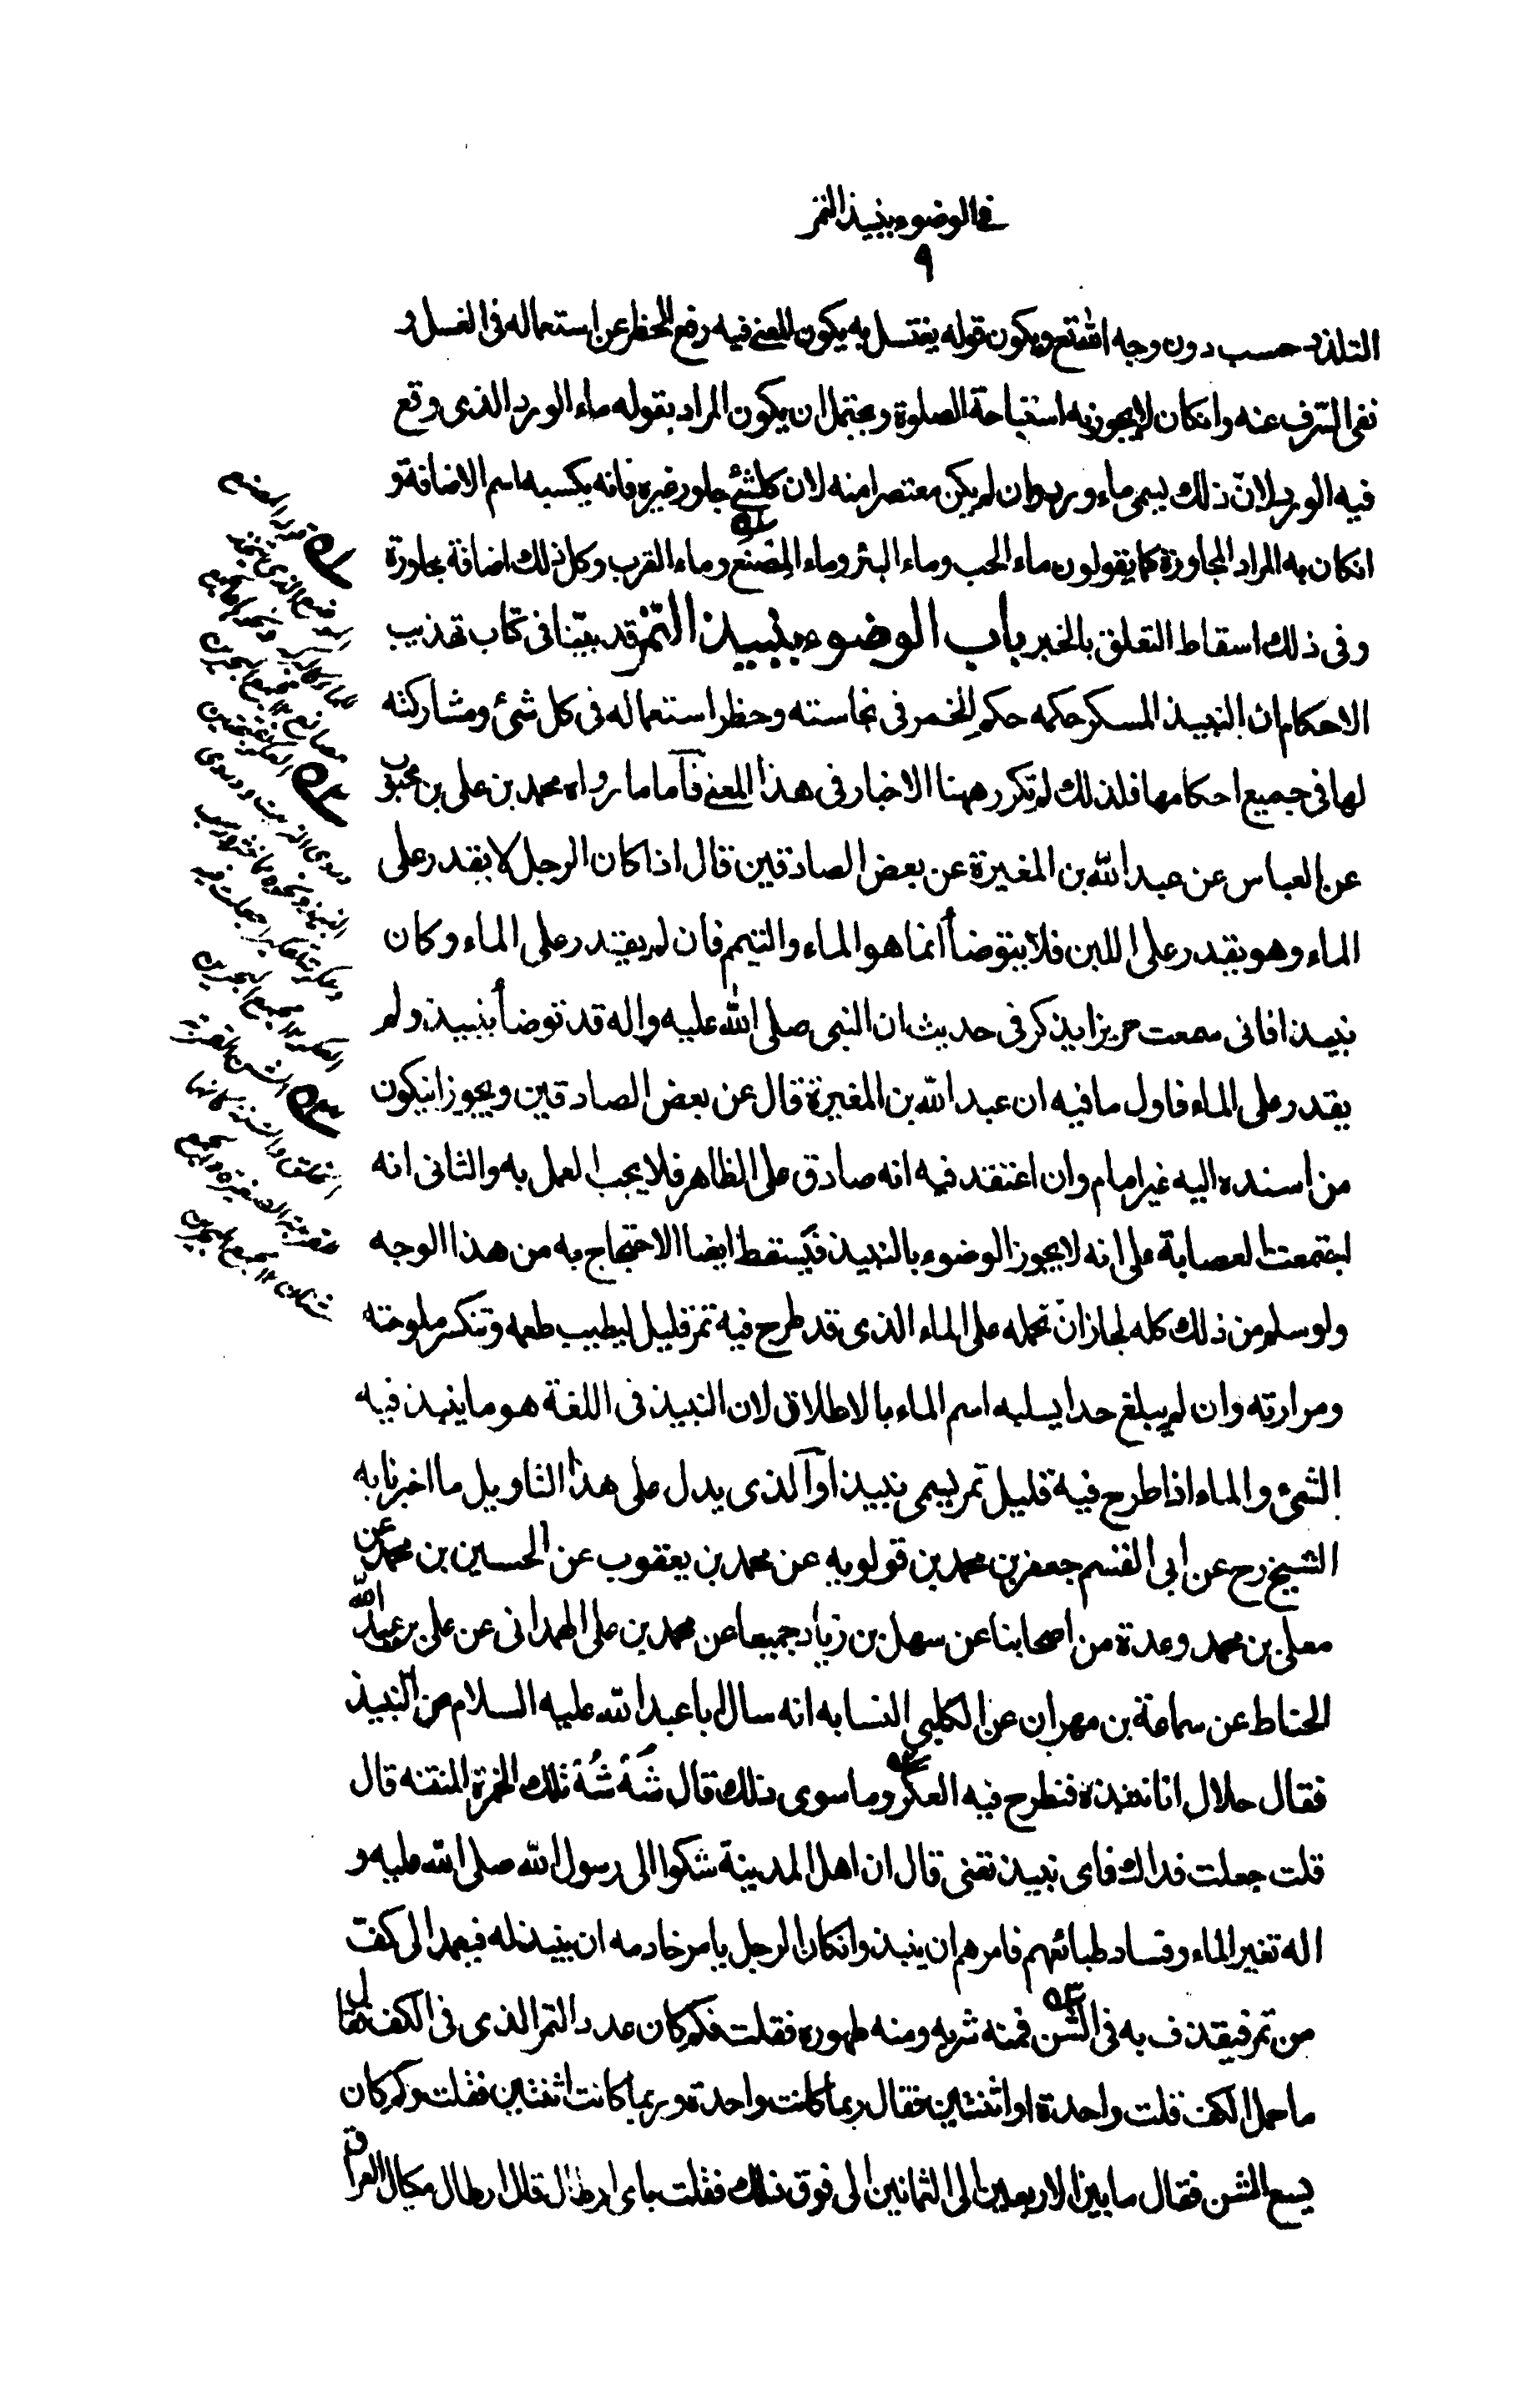 في الوضوء بنبيذ التمر
٩
التلذذ حسب دون وجه الله تع ويكون قوله يغتسل به يكون المعنى فيه رفع الحظر عن استعماله في الغسل و
نفى السرف عنه وانكان لا يجوز به استباحة الصلوة ويحتمل ان يكون المراد بقوله ماء الورد الذي وقع
فيه الورد لانّ ذلك يسمى ماء ورد وان لم يكن معتصرا منه لان كلشئ جاور غيره فانه يكسبه اسم الاضافة و
انكان به المراد المجاورة كما يقولون ماء الحب وماء البئر وماء المِصْنَع وماء القرب وكل ذلك اضافة مجاورة
وفي ذلك اسقاط التعلق بالخبر باب الوضوء بنبيذ التمر قد بيّنا في كتاب تهذيب
الاحكام ان النبيذ المسكر حكمه حكم الخمر في نجاسته وحظر استعماله في كل شئ ومشاركته
لها في جميع احكامها فلذلك لم تكرر ههنا الاخبار في هذا المعنى فآما ما رواه محمد بن على بن محبوب
عن العباس عن عبد الله بن المغيرة عن بعض الصادقين قال اذا كان الرجل لا يقدر على
الماء وهو يقدر على اللبن فلا يتوضأ انما هو الماء والتيمم فان لم يقدر على الماء وكان
نبيذا فانى سمعت حريزا يذكر في حديث ان النبي صلى الله عليه واله قد توضأ بنبيذ ولم
يقدر على الماء فاول ما فيه ان عبد الله بن المغيرة قال عن بعض الصادقين ويجوز انيكون
من اسنده اليه غير امام وان اعتقد فيه انه صادق على الظاهر فلا يجب العمل به والثاني انه
اجتمعت العصابة على انه لا يجوز الوضوء بالنبيذ فيسقط ايضا الاحتجاج به من هذا الوجه
ولو سلم من ذلك كله لجاز ان تحمله على الماء الذي قد طرح فيه تمر قليل ليطيب طعمه وتنكسر ملوحته
ومرارته وان لم يبلغ حدا يسلبه اسم الماء بالاطلاق لان النبيذ في اللغة هو ما ينبذ فيه
الشئ والماء اذا طرح فيه قليل تمر يسمى نبيذا وآلذي يدل على هذا التاويل ما اخبرنا به
الشيخ رح عن ابى القسم جعفر بن محمد بن قولويه عن محمد بن يعقوب عن الحسين بن محمد عن
معلى بن محمد وعدة من اصحابنا عن سهل بن زياد جميعا عن محمد بن على الهمدانى عن على بن عبد الله
الحناط عن سماعة بن مهران عن الكلبى النسابه انه سال ابا عبد الله عليه السلام عن النبيذ
فقال حلال انا ننبذه فنطرح فيه العكر وما سوى ذلك قال شَهْ شُهْ تلك الخمرة المنتنه قال
قلت جعلت فداك فاى نبيذ تعنى قال ان اهل المدينة شكوا الى رسول الله صلى الله عليه و
اله تغير الماء وفساد طبائعهم فامرهم ان ينبذ وانكان الرجل يامر خادمه ان ينبذ له فيعمد الى كف
من تمر فيقذف به في الشن فمنه شربه ومنه طهوره فقلت فكم كان عدد التمر الذي في الكف قال
ما حمل الكف قلت واحدة او اثنتين فقال ربما كانت واحدة وربما كانت اثنتين فقلت وكم كان
يسع الشن فقال ما بين الاربعين الى الثمانين الى فوق ذلك فقلت باى ارطال قال ارطال مكيال العراق